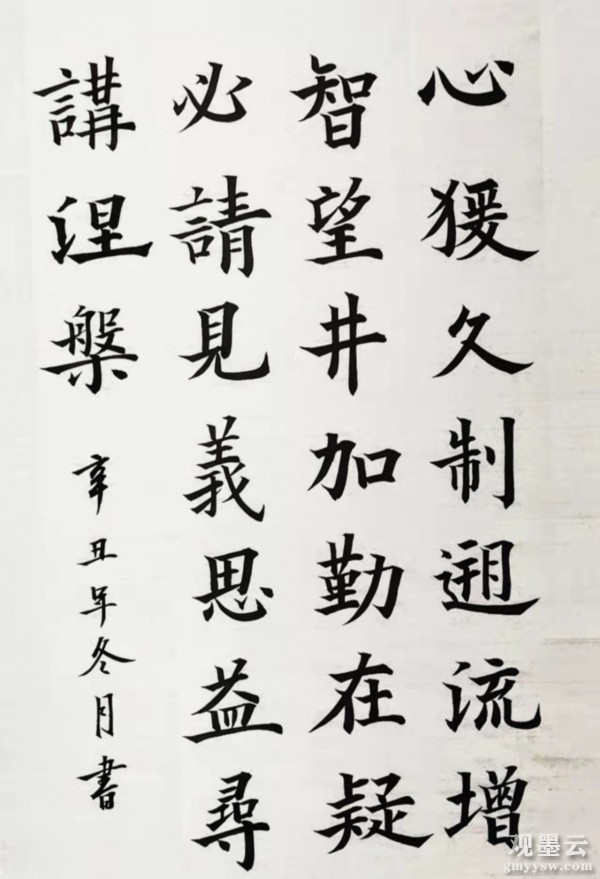 心猨久制遡流增
智望井加勤在疑
必請見義思益尋
講涅槃
辛丑年冬月書
观墨云
gmyysw.com